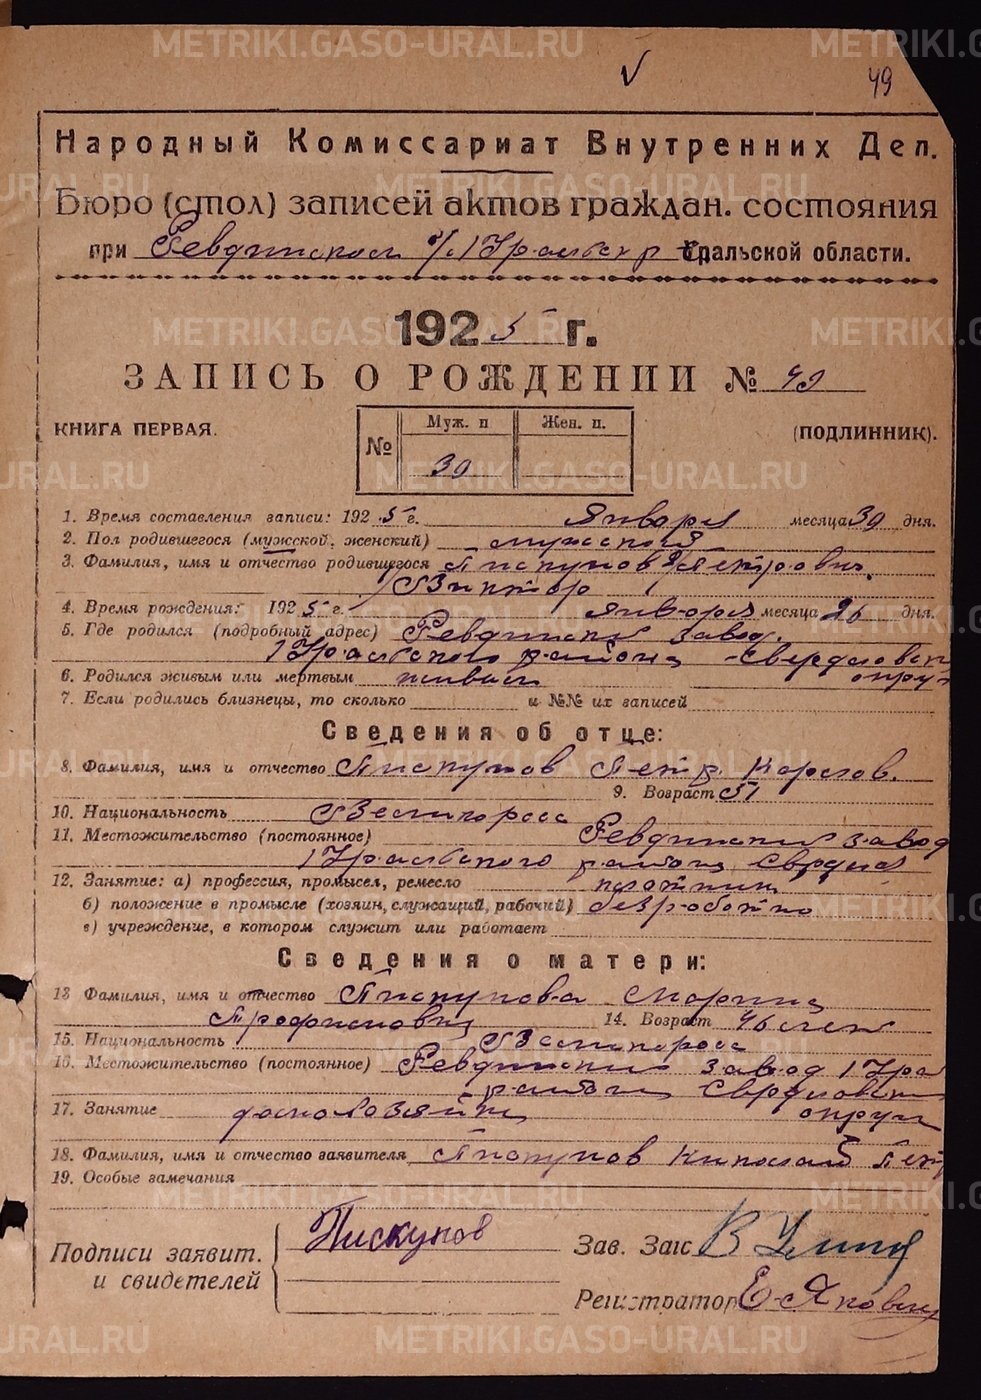 49
Народный Комиссариат Внутренних Дел.
Бюро (стол) записей актов граждан. состояния
при Ревдинском 1 Уральск р Уральской области.
1925 г.
ЗАПИСЬ О РОЖДЕНИИ № 49
КНИГА ПЕРВАЯ.
(ПОДЛИННИК).
№ Муж. п Жен. п.
30
1. Время составления записи: 1925 г. Января месяца 30 дня.
2. Пол родившегося (мужской, женский) мужской
3. Фамилия, имя и отчество родившегося Пискунов Петрович
Виктор
4. Время рождения: 1925 г. января месяца 26 дня.
5. Где родился (подробный адрес) Ревдинский завод.
1 Уральского района Свердловск
округ
6. Родился живым или мертвым живым
7. Если родились близнецы, то сколько и №№ их записей
Сведения об отце:
8. Фамилия, имя и отчество Пискунов Петр
9. Возраст 51
10. Национальность Великоросс
11. Местожительство (постоянное) Ревдинский завод
1 Уральского района Свердлов
12. Занятие: а) профессия, промысел, ремесло плотник
б) положение в промысле (хозяин, служащий, рабочий) безроботно
в) учреждение, в котором служит или работает
Сведения о матери:
13 Фамилия, имя и отчество Пискунова Мария
Трофимовна 14. Возраст 46 лет
15. Национальность Великоросс
16. Местожительство (постоянное) Ревдинский завод 1 Ура
район Свердловск
округ
17. Занятие домохозяйка
18. Фамилия, имя и отчество заявителя Пискунов Николай Пет
19. Особые замечания
Подписи заявит.
и свидетелей
Пискунов
Зав. Загс
Регистратор Е.
METRIKI.GASO-URAL.RU